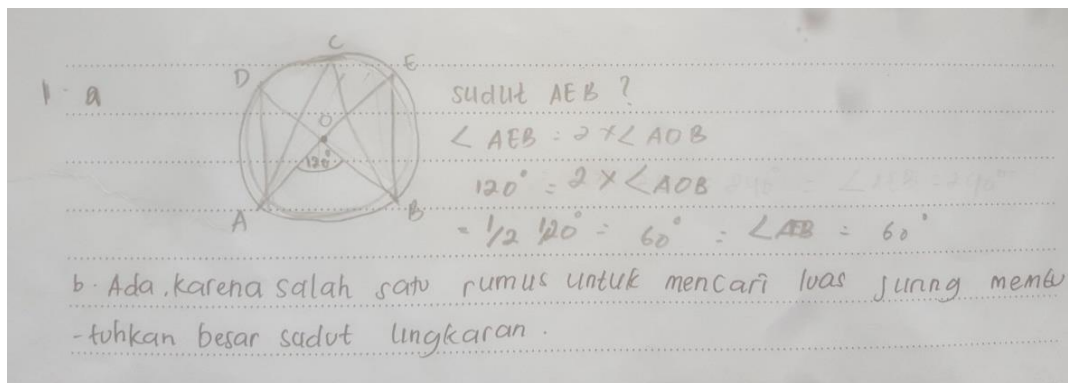 1. a
C
D
E
O
120°
A
B
sudut AEB ?
∠ AEB = 2 x ∠ AOB
120° = 2 x ∠ AOB
= 1/2 120° = 60° = ∠AEB = 60°
b. Ada, karena salah satu rumus untuk mencari luas juring membu
-tuhkan besar sudut lingkaran.